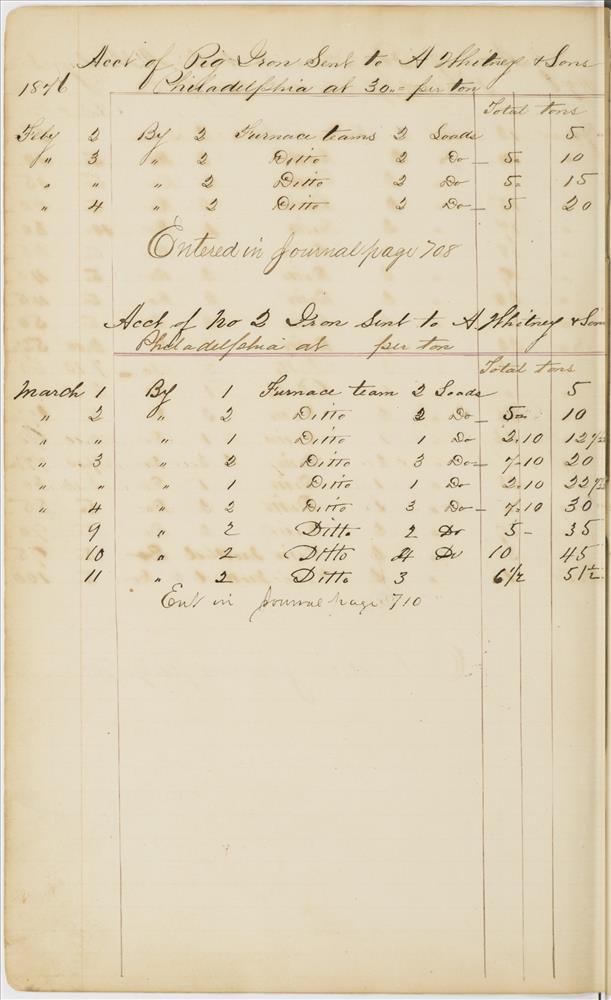 Acct of Pig Iron Sent to A Whitney & Sons
1876 Philadelphia at 30.00 per ton
Total tons
Feby 2 By 2 Furnace teams 2 Loads 5
" 3 " 2 Ditto 2 Do — 5" 10
" " " 2 Ditto 2 Do 5" 15
" 4 " 2 Ditto 2 Do — 5 20
Entered in Journal page 708
Acct of No 2 Iron Sent to A Whitney & Sons
Philadelphia at per ton
Total tons
March 1 By 1 Furnace team 2 Loads 5
" 2 " 2 Ditto 2 Do — 5" 10
" " " 1 Ditto 1 Do 2.10 12
" 3 " 2 Ditto 3 Do — 7.10 20
" " " 1 Ditto 1 Do 2.10 22
" 4 " 2 Ditto 3 Do — 7.10 30
9 " 2 Ditto 2 Do 5 — 35
10 " 2 Ditto 4 Do 10 45
11 " 2 Ditto 3 6 1/2 51 1/2
Ent in Journal page 710